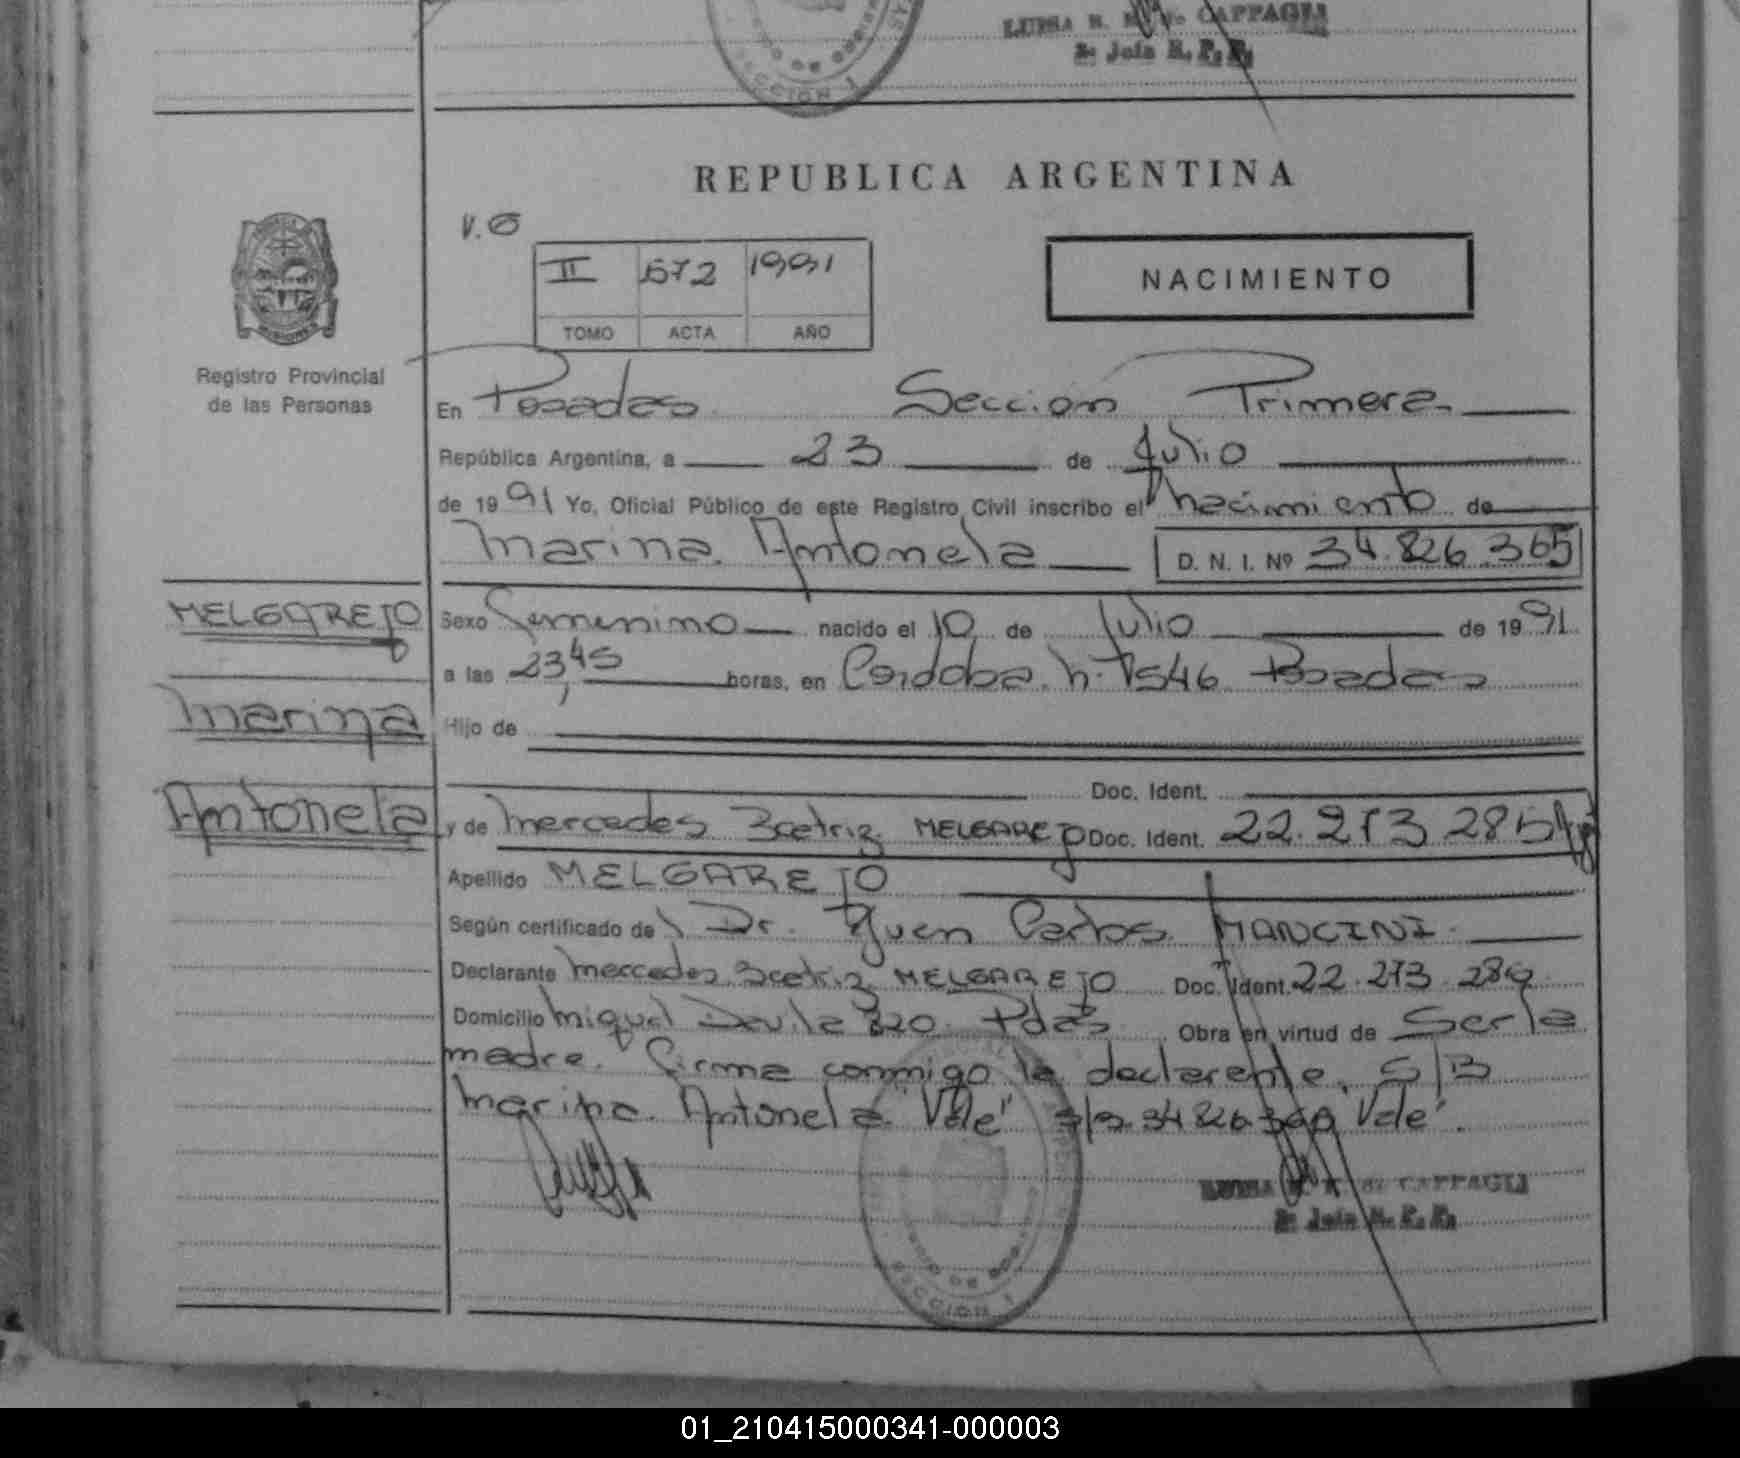 LUISA R. de CAPPAGLI
2ª Jefa R. P. P.
SECCION 1
REPUBLICA ARGENTINA
V.O
II 572 1991
TOMO ACTA AÑO
NACIMIENTO
Registro Provincial
de las Personas
En Posadas Sección Primera
República Argentina, a 23 de Julio
de 1991 Yo, Oficial Público de este Registro Civil inscribo el nacimiento de
Marina Antonela D. N. I. Nº 34.826.365
MELGAREJO
Marina
Antonela
Sexo Femenino nacido el 10 de Julio de 1991
a las 23,45 horas, en Cordoba Nº 1546 Posadas
Hijo de
Doc. Ident.
y de Mercedes Beatriz MELGAREJO Doc. Ident. 22.273.28
Apellido MELGAREJO
Según certificado de Dr. Juan Carlos MANCINI
Declarante Mercedes Beatriz MELGAREJO Doc. Ident. 22.273.28
Domicilio Miguel Davila 820 Pdas Obra en virtud de Ser la
madre. Firma conmigo la declarante. S/B
Marina Antonela "Vale" S/B. 34826365 "Vale".
LUISA R. de CAPPAGLI
2ª Jefa R. P. P.
SECCION 1
01_210415000341-000003